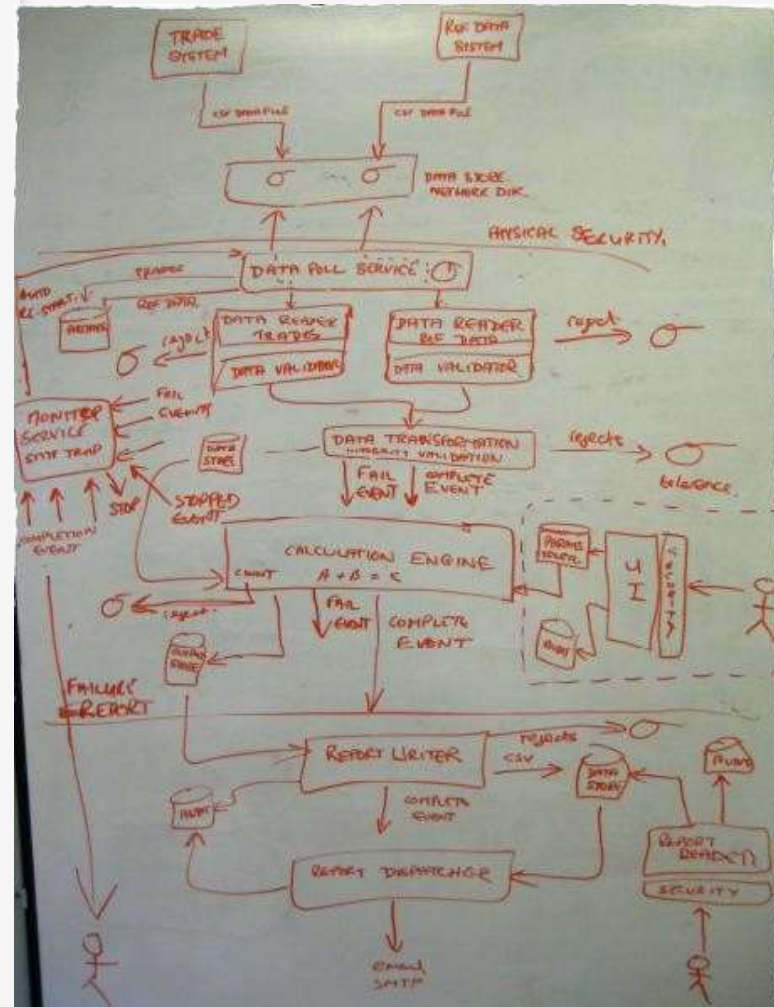 TRADE
SYSTEM
REF DATA
SYSTEM
CSV DATA FILE
CSV DATA FILE
DATA STORE
NETWORK DIR.
PHYSICAL SECURITY.
DATA POLL SERVICE
AUTO
RE-START
TRADES
REF DATA
ARCHIVE
DATA READER
TRADES
DATA VALIDATOR
reject
DATA READER
REF DATA
DATA VALIDATOR
reject
MONITOR
SERVICE
SNMP TRAP
FAIL
EVENTS
STOP
STOPPED
EVENT
COMPLETION
EVENT
DATA
STORE
DATA TRANSFORMATION
INTEGRITY VALIDATION
rejects
tolerance.
FAIL
EVENT
COMPLETE
EVENT
CALCULATION ENGINE
COUNT
A + B = C
PARAMS
UI
SECURITY
AUDIT
reject.
FAIL
EVENT
COMPLETE
EVENT
STORE
FAILURE
REPORT
REPORT WRITER
rejects
CSV
DATA
STORE
AUDIT
AUDIT
COMPLETE
EVENT
REPORT DISPATCHER
REPORT
READER
SECURITY
EMAIL
SMTP